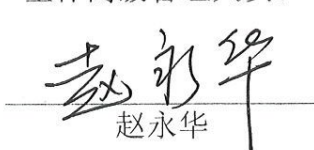 赵永华
赵永华